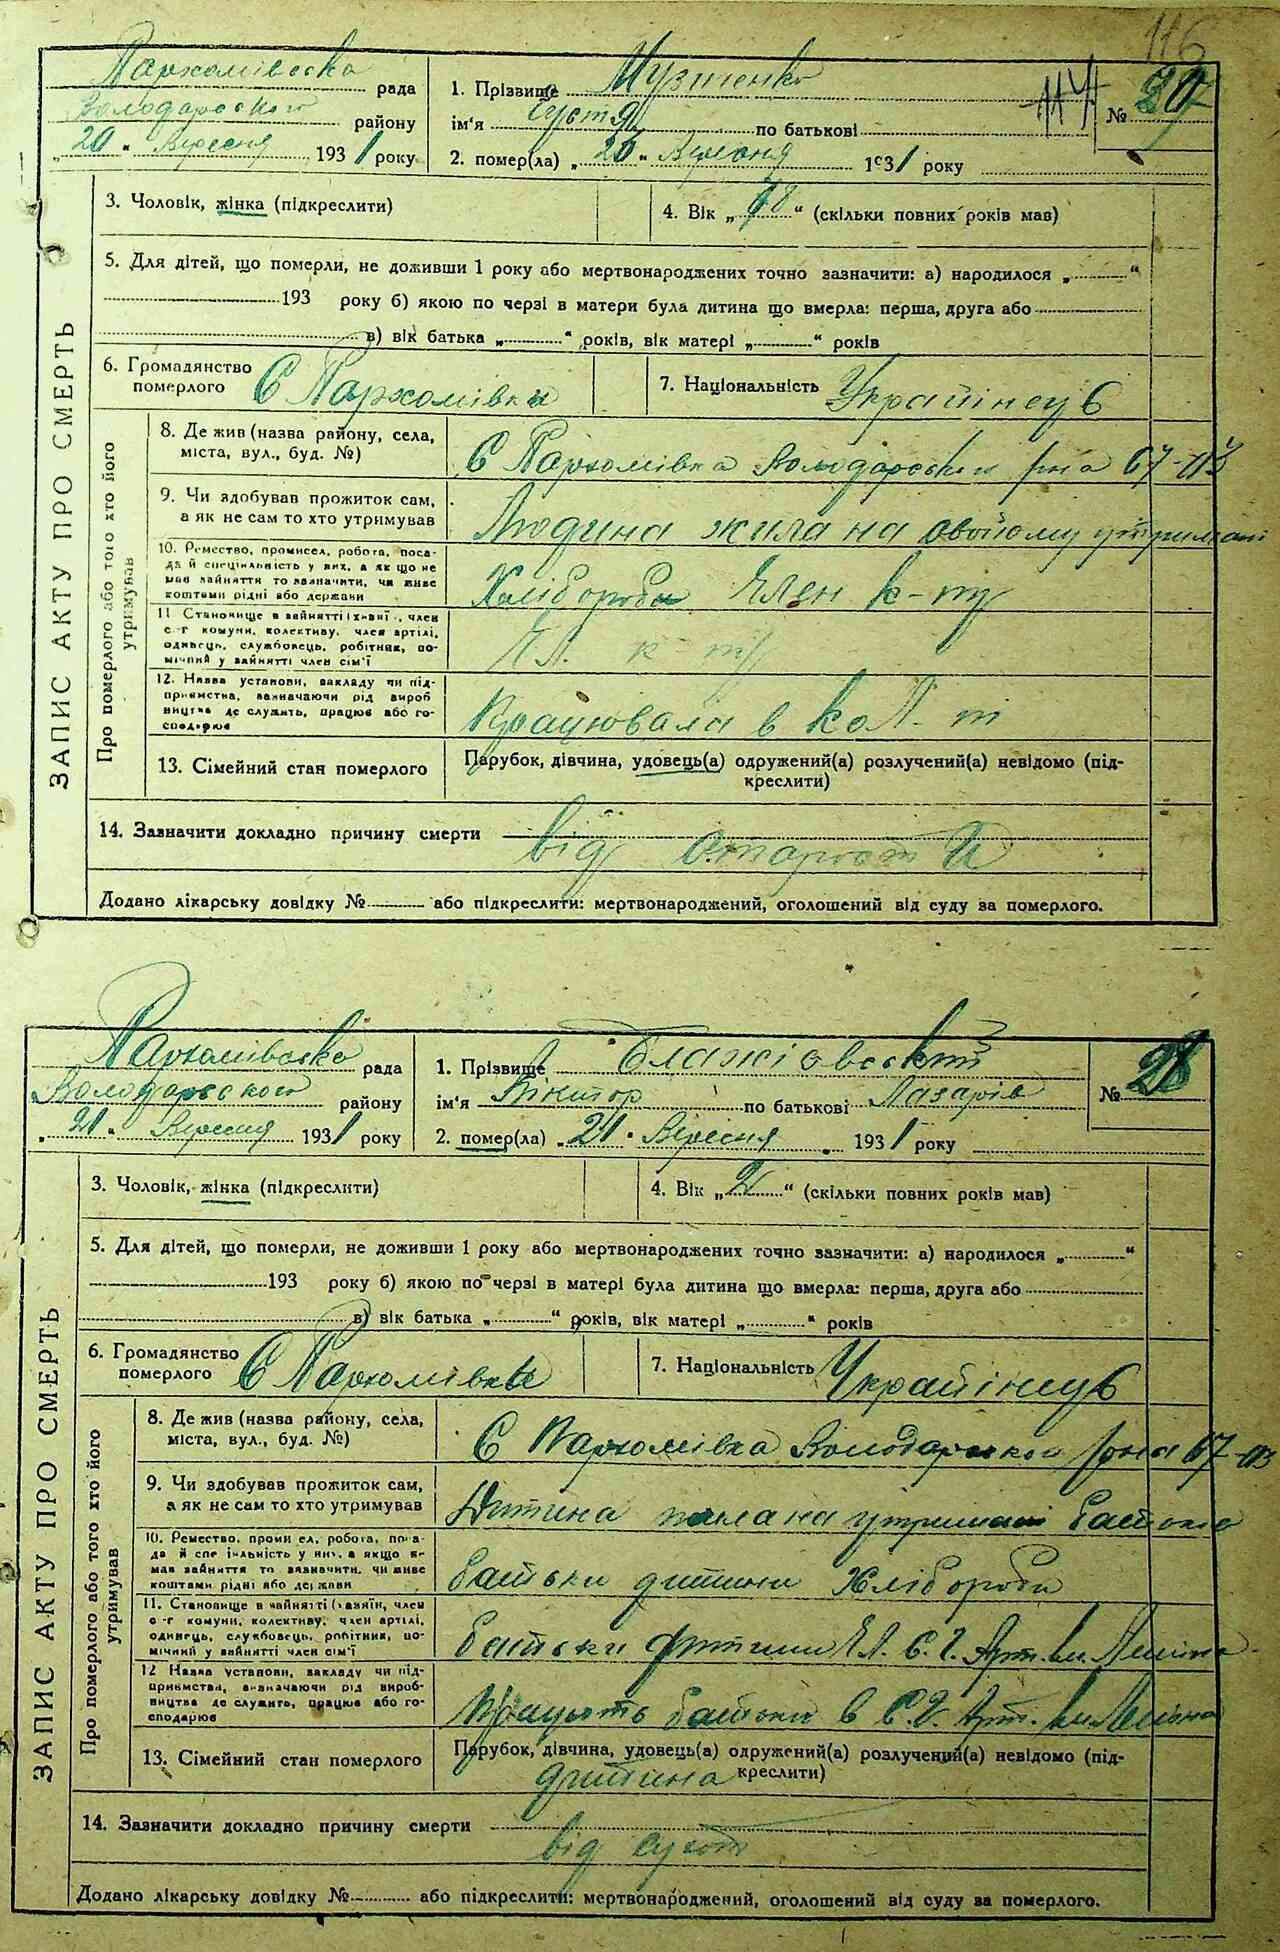 116
Пархомівська рада
Володарського району
„20“ Вересня 1931 року
1. Прізвище Музиченко
ім'я Устя по батькові
2. помер(ла) „20“ Вересня 1931 року
114
№ 27
ЗАПИС АКТУ ПРО СМЕРТЬ
3. Чоловік, жінка (підкреслити)
4. Вік „78“ (скільки повних років мав)
5. Для дітей, що померли, не доживши 1 року або мертвонароджених точно зазначити: а) народилося „ “
193 року б) якою по черзі в матери була дитина що вмерла: перша, друга або
в) вік батька „ “ років, вік матері „ “ років
6. Громадянство померлого С Пархомівка
7. Національність Українець
Про померлого або того хто його утримував
8. Де жив (назва району, села,
міста, вул., буд. №)
С Пархомівка Володарськ р-на
9. Чи здобував прожиток сам,
а як не сам то хто утримував
Людина жила на свойому утриман
10. Ремество, промисел, робота, поса-
да й спеціяльність у них, а як що не
мав зайняття то зазначити, чи живе
коштами рідні або держави
Хлібороби Член к-ту
11 Становище в зайнятті (хазяїн, член
с-г комуни, колективу, член артілі,
одинець, службовець, робітник, по-
мічний у зайнятті член сім'ї
Чл. к-ту
12. Назва установи, закладу чи під-
приємства, зазначаючи рід вироб
ництва де служить, працює або го-
сподарює
Працювала в кол-ті
13. Сімейний стан померлого
Парубок, дівчина, удовець(а) одружений(а) розлучений(а) невідомо (під-
креслити)
14. Зазначити докладно причину смерти
від старости
Додано лікарську довідку № або підкреслити: мертвонароджений, оголошений від суду за померлого.
Пархомівська рада
Володарського району
„21“ Вересня 1931 року
1. Прізвище
ім'я Віктор по батькові Лазарів
2. помер(ла) „21“ Вересня 1931 року
№ 28
ЗАПИС АКТУ ПРО СМЕРТЬ
3. Чоловік, жінка (підкреслити)
4. Вік „2“ (скільки повних років мав)
5. Для дітей, що померли, не доживши 1 року або мертвонароджених точно зазначити: а) народилося „ “
193 року б) якою по черзі в матері була дитина що вмерла: перша, друга або
в) вік батька „ “ років, вік матері „ “ років
6. Громадянство померлого С Пархомівка
7. Національність Українець
Про померлого або того хто його утримував
8. Де жив (назва району, села,
міста, вул., буд. №)
С Пархомівка Володарськ района
9. Чи здобував прожиток сам,
а як не сам то хто утримував
Дитина на утриман
10. Ремество, промисел, робота, поса-
да й спеціяльність у них, а якщо не
мав зайняття то зазначити, чи живе
коштами рідні або держави
батьки дитини Хлібороби
11. Становище в зайнятті (хазяїн, член
с-г комуни, колективу, член артілі,
одинець, службовець, робітник, по-
мічний у зайнятті член сім'ї
батьки дитини Чл. С.Г. Арт. ім. Леніна
12 Назва установи, закладу чи під-
приємства, зазначаючи рід вироб-
ництва де служить, працює або го-
сподарює
Працюють батьки в С.Г. Арт. ім Леніна
13. Сімейний стан померлого
Парубок, дівчина, удовець(а) одружений(а) розлучений(а) невідомо (під-
креслити)
дитина
14. Зазначити докладно причину смерти
від сухот
Додано лікарську довідку № або підкреслити: мертвонароджений, оголошений від суду за померлого.